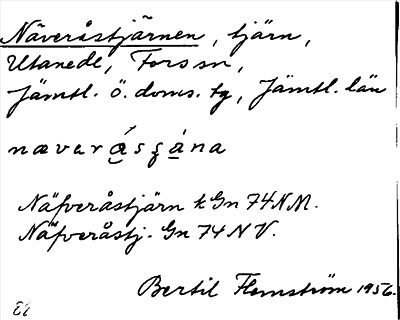 Näveråstjärnen, tjärn,
Utanede, Fors sn,
Jämtl. ö. doms. tg, Jämtl. län
Näfveråstjärn k Gn 74 NM.
Näfveråstj. Gn 74 NV.
Bertil Flemström 1956.